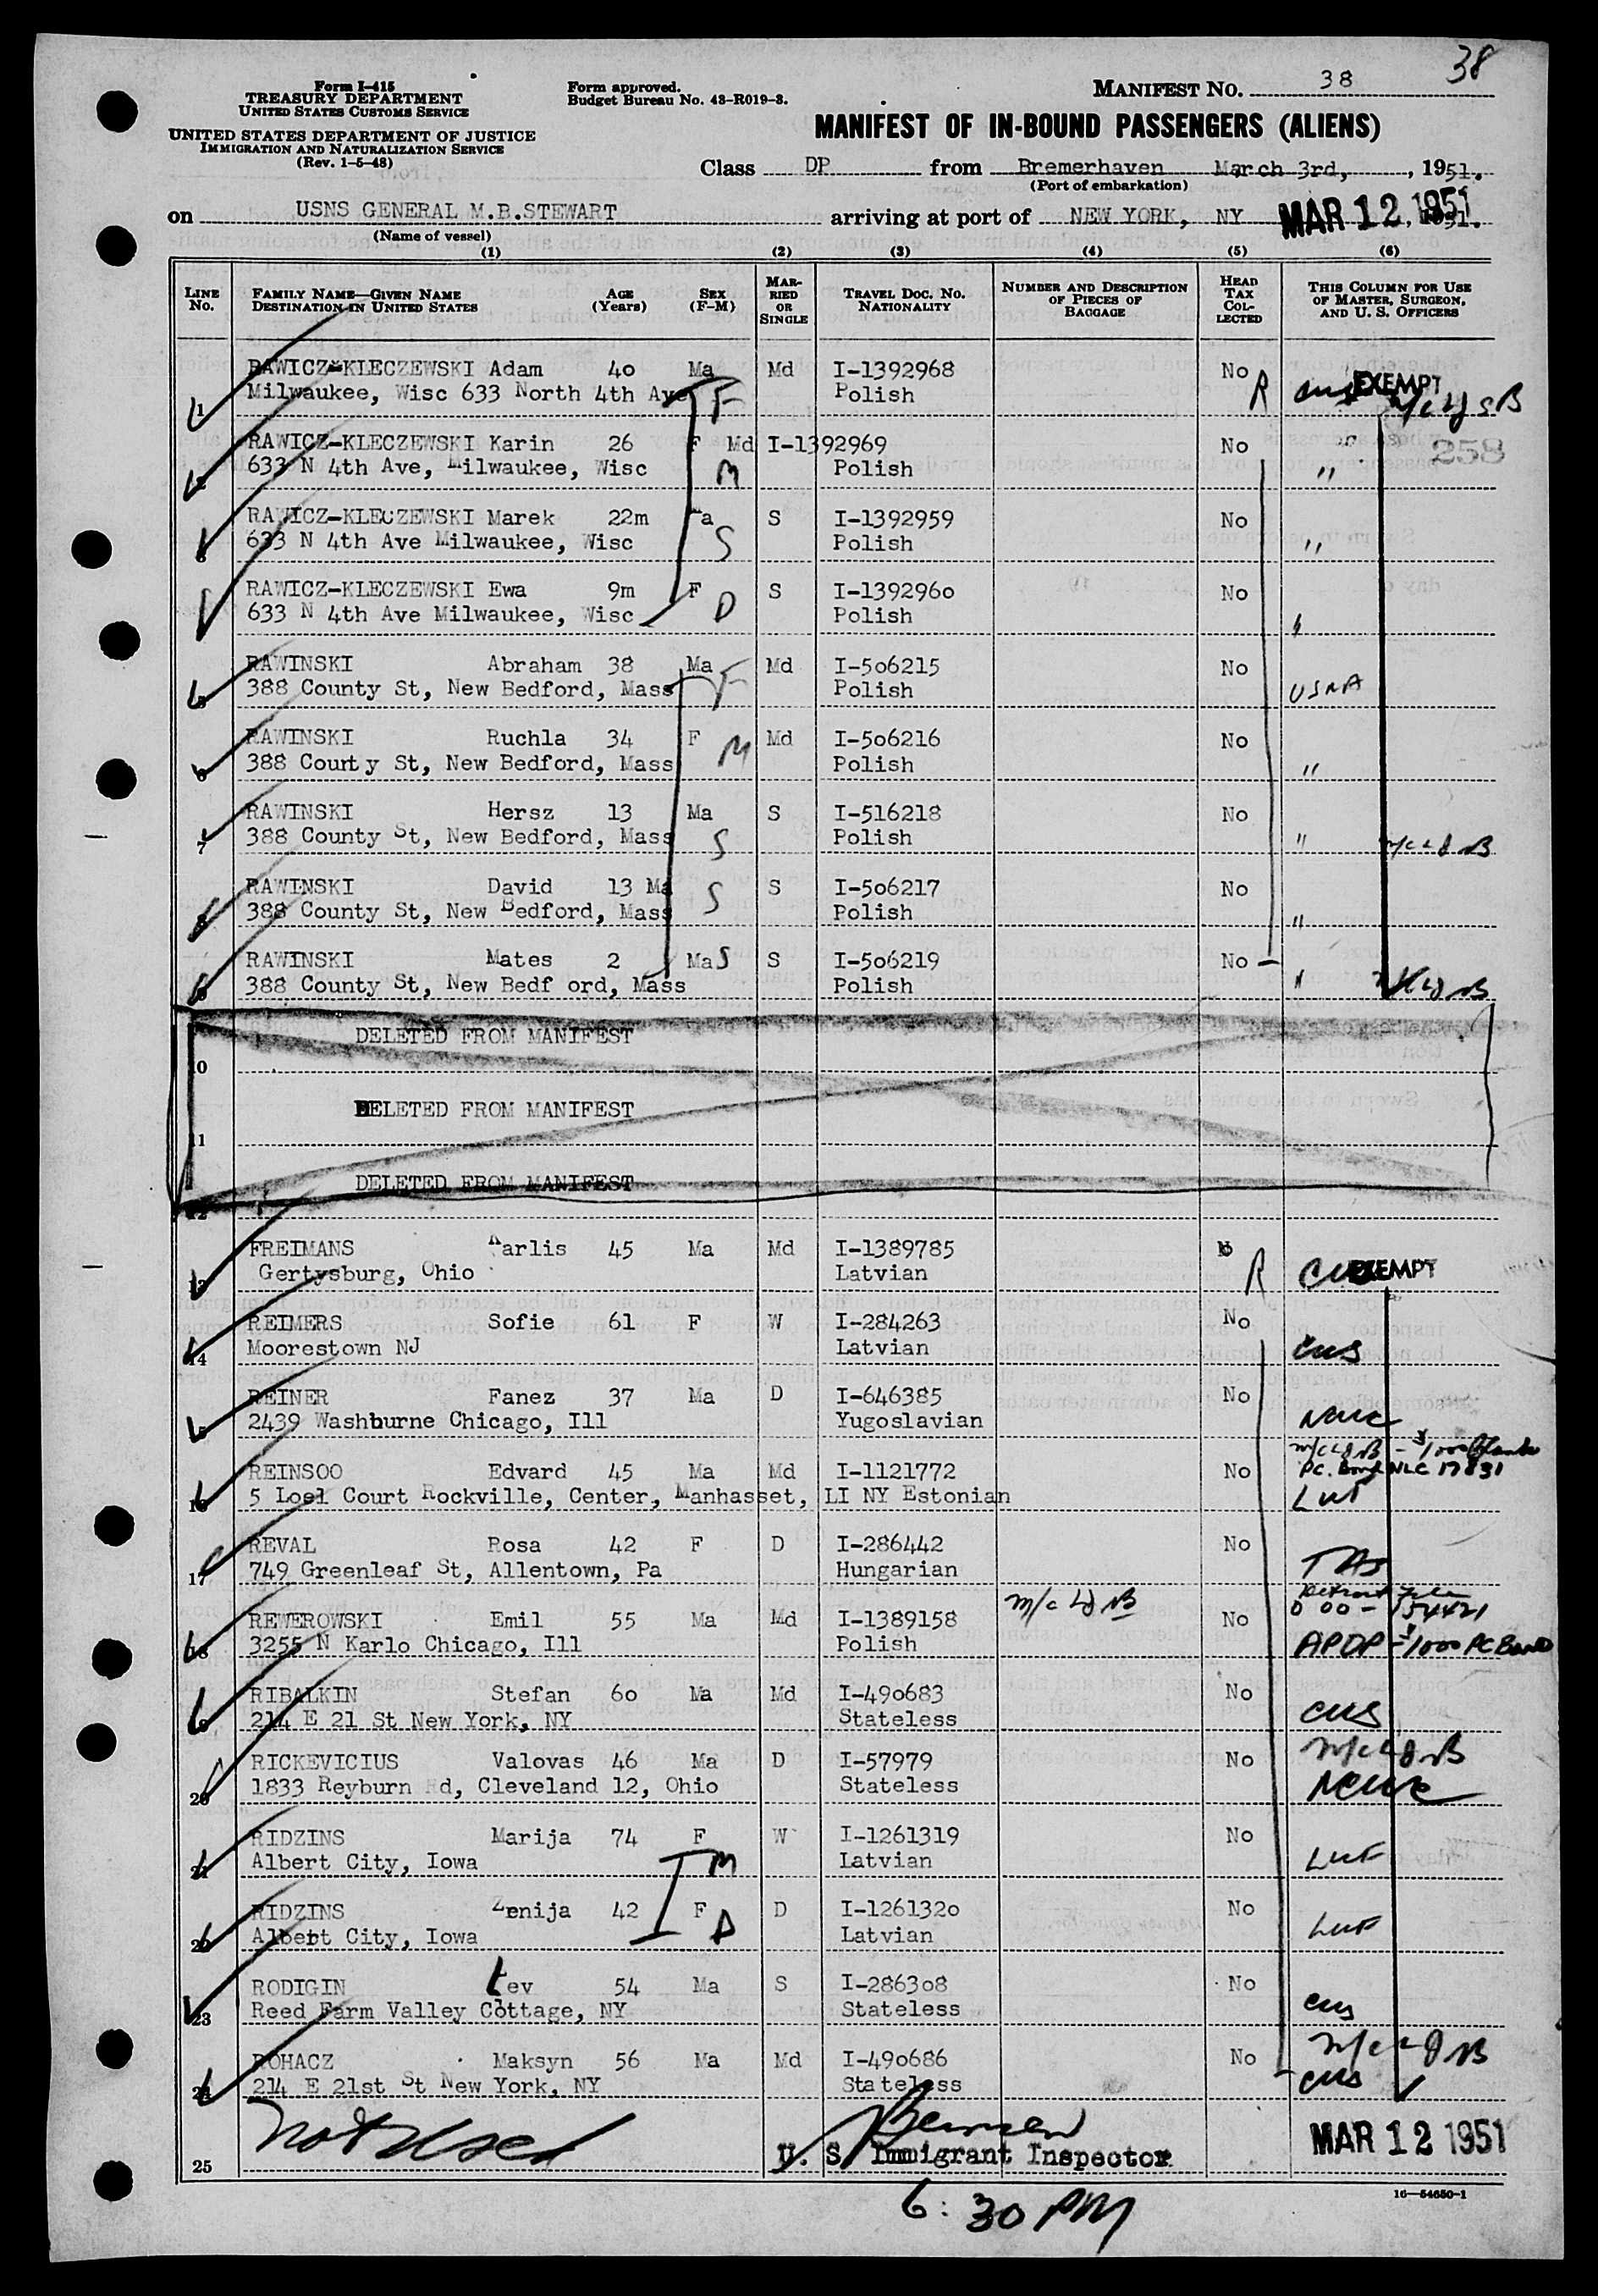 38
Form I-415
TREASURY DEPARTMENT
UNITED STATES CUSTOMS SERVICE
UNITED STATES DEPARTMENT OF JUSTICE
IMMIGRATION AND NATURALIZATION SERVICE
(Rev. 1-5-48)
Form approved.
Budget Bureau No. 43-R019-3.
MANIFEST No. 38
MANIFEST OF IN-BOUND PASSENGERS (ALIENS)
Class DP from Bremerhaven March 3rd, , 1951.
(Port of embarkation)
on USNS GENERAL M.B.STEWART arriving at port of NEW YORK, NY MAR 12 1951
(Name of vessel)
(1) (2) (3) (4) (5) (6)
LINE No. FAMILY NAME—GIVEN NAME DESTINATION IN UNITED STATES AGE (Years) SEX (F-M) MARRIED OR SINGLE TRAVEL DOC. NO. NATIONALITY NUMBER AND DESCRIPTION OF PIECES OF BAGGAGE HEAD TAX COLLECTED THIS COLUMN FOR USE OF MASTER, SURGEON, AND U. S. OFFICERS
RAWICZ-KLECZEWSKI Adam 40 Ma Md I-1392968 No R EXEMPT
1 Milwaukee, Wisc 633 North 4th Ave F Polish
RAWICZ-KLECZEWSKI Karin 26 F Md I-1392969 No " 258
2 633 N 4th Ave, Milwaukee, Wisc M Polish "
RAWICZ-KLECZEWSKI Marek 22m Ma S I-1392959 No
3 633 N 4th Ave Milwaukee, Wisc S Polish "
RAWICZ-KLECZEWSKI Ewa 9m F S I-1392960 No
633 N 4th Ave Milwaukee, Wisc D Polish
RAWINSKI Abraham 38 Ma Md I-506215 No
5 388 County St, New Bedford, Mass F Polish USNA
RAWINSKI Ruchla 34 F Md I-506216 No
6 388 Courty St, New Bedford, Mass M Polish "
RAWINSKI Hersz 13 Ma S I-516218 No
7 388 County St, New Bedford, Mass S Polish "
RAWINSKI David 13 Ma S I-506217 No
8 388 County St, New Bedford, Mass S Polish "
RAWINSKI Mates 2 Ma S S I-506219 No
9 388 County St, New Bedf ord, Mass Polish "
DELETED FROM MANIFEST
10
DELETED FROM MANIFEST
11
DELETED FROM MANIFEST
12
FREIMANS Karlis 45 Ma Md I-1389785 No R EXEMPT
13 Gertysburg, Ohio Latvian
REIMERS Sofie 61 F W I-284263 No
14 Moorestown NJ Latvian cws
REINER Fanez 37 Ma D I-646385 No
15 2439 Washburne Chicago, Ill Yugoslavian
REINSOO Edvard 45 Ma Md I-1121772 No
16 5 Loel Court Rockville, Center, Manhasset, LI NY Estonian
REVAL Rosa 42 F D I-286442 No
17 749 Greenleaf St, Allentown, Pa Hungarian
REWEROWSKI Emil 55 Ma Md I-1389158 No
18 3255 N Karlo Chicago, Ill Polish APDP $1000 PC Bond
RIBALKIN Stefan 60 Ma Md I-490683 No
19 214 E 21 St New York, NY Stateless cws
RICKEVICIUS Valovas 46 Ma D I-57979 No
20 1833 Reyburn Rd, Cleveland 12, Ohio Stateless
RIDZINS Marija 74 F W I-1261319 No
21 Albert City, Iowa M Latvian
RIDZINS Zenija 42 F D I-1261320 No
22 Albert City, Iowa D Latvian
RODIGIN Lev 54 Ma S I-286308 No
23 Reed Farm Valley Cottage, NY Stateless cws
ROHACZ Maksyn 56 Ma Md I-490686 No
24 214 E 21st St New York, NY Stateless cws
not used
25 U. S. Immigrant Inspector MAR 12 1951
16—54650-1
6:30 PM